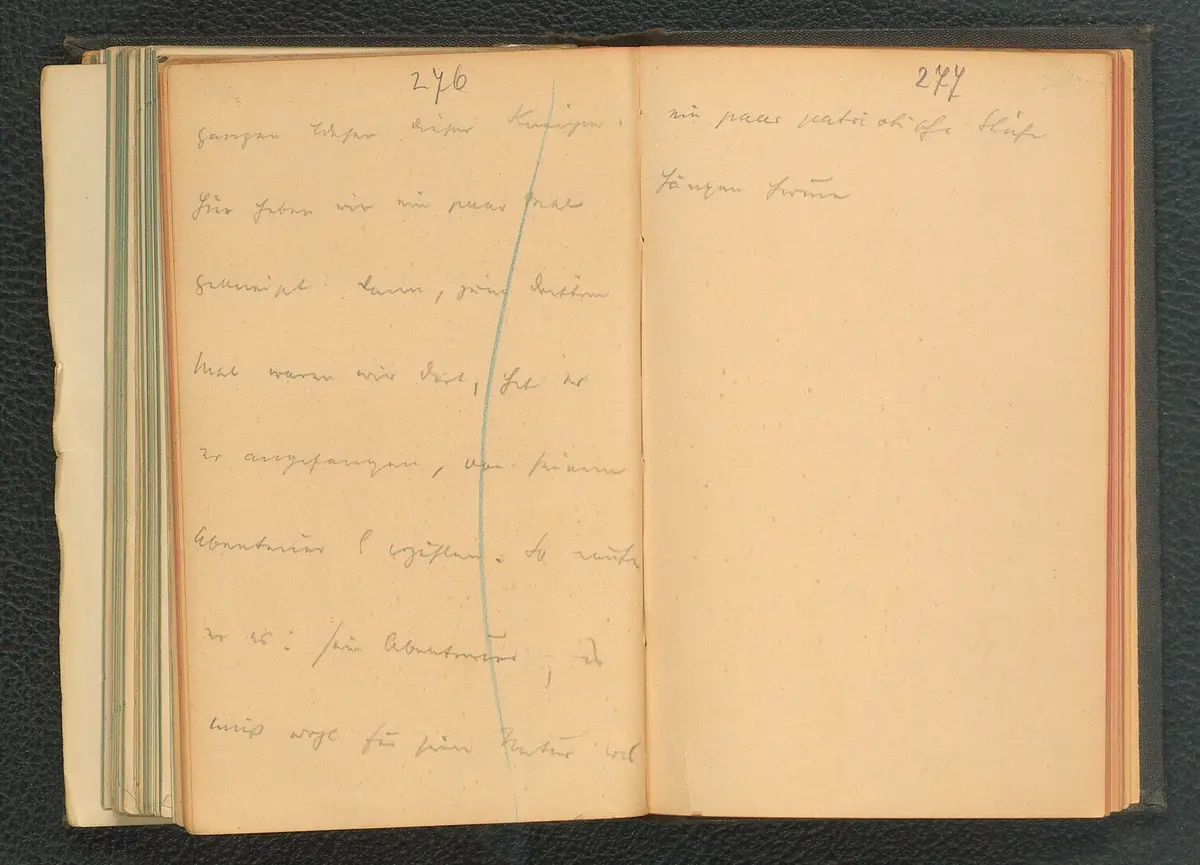 276
ganzen Wesen dieser Kneipe.
Hier haben wir ein paar Mal
gekneipt. Dann, zum dritten
Mal waren wir dort, hat er
er angefangen, von seinem
Abenteuer erzählen. So nannte
er es: sein Abenteuer, es
muß wohl für seine Natur was
277
ein paar patriotische
hängen herum